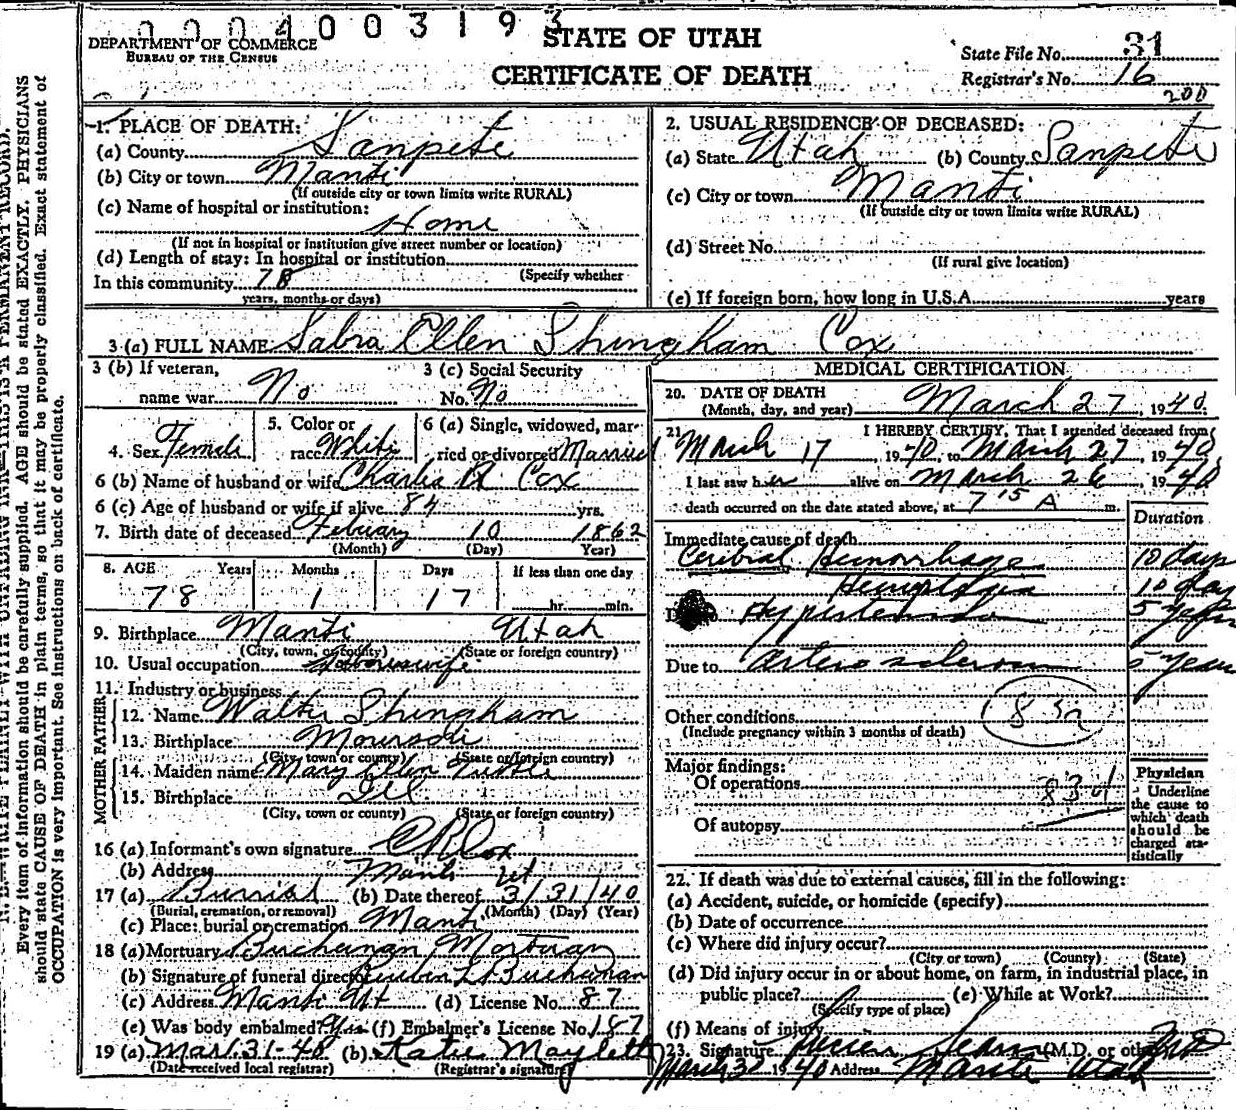 0004003193
DEPARTMENT OF COMMERCE
BUREAU OF THE CENSUS
STATE OF UTAH
CERTIFICATE OF DEATH
State File No. 31
Registrar's No. 16
200
1. PLACE OF DEATH:
(a) County Sanpete
(b) City or town Manti
(If outside city or town limits write RURAL)
(c) Name of hospital or institution:
Home
(If not in hospital or institution give street number or location)
(d) Length of stay: In hospital or institution
(Specify whether
In this community 78
years, months or days)
2. USUAL RESIDENCE OF DECEASED:
(a) State Utah (b) County Sanpete
(c) City or town Manti
(If outside city or town limits write RURAL)
(d) Street No.
(If rural give location)
(e) If foreign born, how long in U.S.A. years
3 (a) FULL NAME Sabra Ellen Shingham Cox
3 (b) If veteran,
name war No
3 (c) Social Security
No. No
4. Sex Female
5. Color or
race White
6 (a) Single, widowed, mar-
ried or divorced Married
6 (b) Name of husband or wife Charles R Cox
6 (c) Age of husband or wife if alive 84 yrs.
7. Birth date of deceased Febuary 10 1862
(Month) (Day) Year)
8. AGE Years Months Days If less than one day
78 1 17 hr. min.
9. Birthplace Manti Utah
(City, town, or county) (State or foreign country)
10. Usual occupation Housewife
11. Industry or business
FATHER
12. Name Walter Shingham
13. Birthplace
(City, town or county) (State or foreign country)
MOTHER
14. Maiden name Mary Ellen Tuttle
15. Birthplace Ill.
(City, town or county) (State or foreign country)
16 (a) Informant's own signature C R Cox
(b) Address Manti Ut
17 (a) Burrial (b) Date thereof 3/31/40
(Burial, cremation, or removal) (Month) (Day) (Year)
(c) Place: burial or cremation Manti
18 (a) Mortuary Buchanan Mortuary
(b) Signature of funeral director Reuben L. Buchanan
(c) Address Manti Ut (d) License No. 87
(e) Was body embalmed? Yes (f) Embalmer's License No. 187
19 (a) Mar. 31-40 (b) Katie Maylett
(Date received local registrar) (Registrar's signature)
MEDICAL CERTIFICATION
20. DATE OF DEATH
(Month, day, and year) March 27, 1940.
21. I HEREBY CERTIFY, That I attended deceased from
March 17 1940, to March 27, 1940,
I last saw her alive on March 26, 1940
death occurred on the date stated above, at 7 15 A m.
Duration
Immediate cause of death
Cerebral Hemorrhage 10 days
Hemiplegia 10 days
Hypertension 5 years
Due to Arterosclerosis 5 years
Other conditions
(Include pregnancy within 3 months of death)
Major findings:
Of operations
83a
Of autopsy
Physician
Underline
the cause to
which death
should be
charged sta-
tistically
22. If death was due to external causes, fill in the following:
(a) Accident, suicide, or homicide (specify)
(b) Date of occurrence
(c) Where did injury occur?
(City or town) (County) (State)
(d) Did injury occur in or about home, on farm, in industrial place, in
public place? (e) While at Work?
(Specify type of place)
(f) Means of injury
23. Signature Sears (M.D. or other) MD
March 30 1940 Address Manti Utah
Every item of information should be carefully supplied. AGE should be stated EXACTLY. PHYSICIANS
should state CAUSE OF DEATH in plain terms, so that it may be properly classified. Exact statement of
OCCUPATION is very important. See instructions on back of certificate.